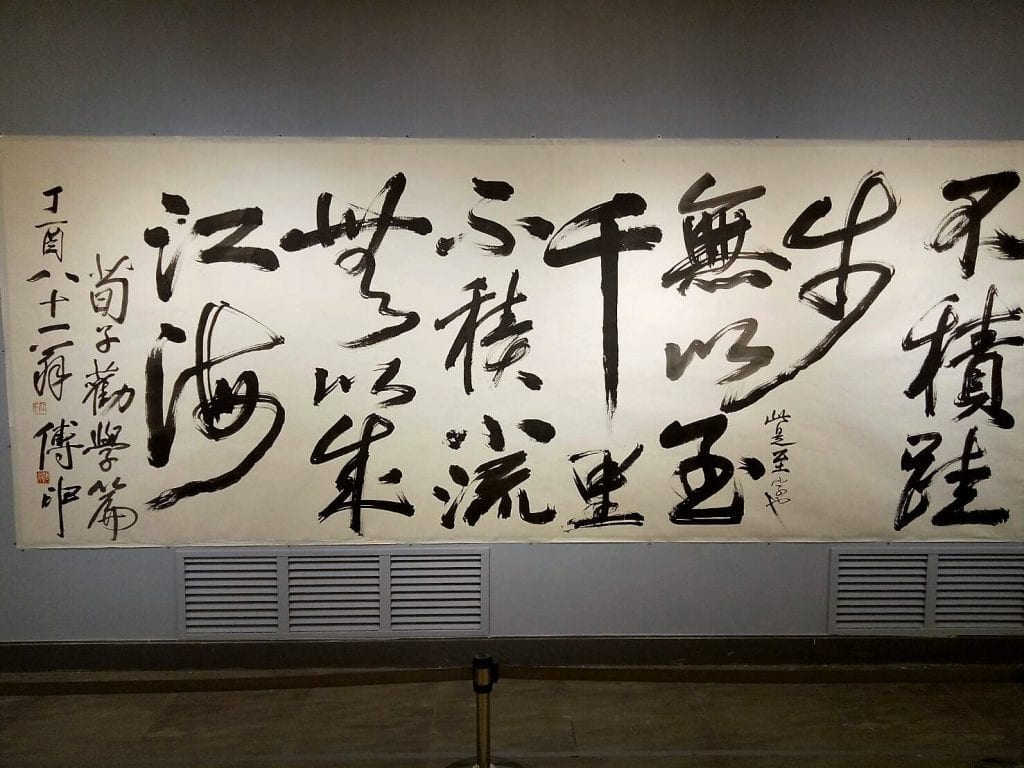 不積跬
步
無以至
此是至字也
千里
不積小流
無以成
江海
荀子勸學篇
丁酉八十一翁傅申